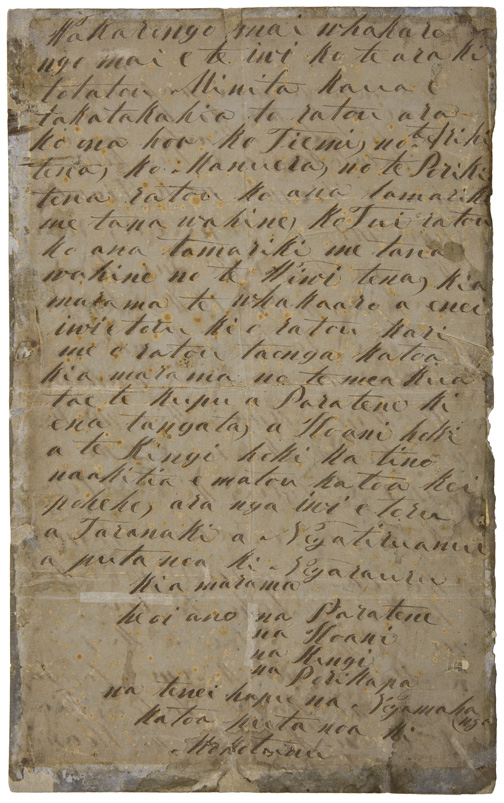 Wakarongo mai whakaro
ngo mai e te iwi ko te ara ki
totatou Minita kaua e
takatakahia to ratou ara
ko ona hoa ko Tiemi, no te Iriki
tena, ko Manuera, no te Poriki
tena ratou ko ana tamariki
me tana wahine, ko Tui ratou
ko ana tamariki me tana
wahine no te Hiwi tena, kia
marama te whakaaro a enei
iwi toru ki o ratou kari
me o ratou taonga katoa
kia marama no te mea kua
tae te kupu a Paratene ki
ena tangata, a Hoani hoki
a te Kingi hoki ka tino
naakitia e matou katoa kei
poheke, ara nga iwi e toru
a Taranaki a Ngatiruanui
a puta noa ki Ngarauru
kia marama
heoi ano na Paratene
na Hoani
na Kingi
na Porikapa
na tenei hapu na Ngamaha
(nga
katoa puta noa ki